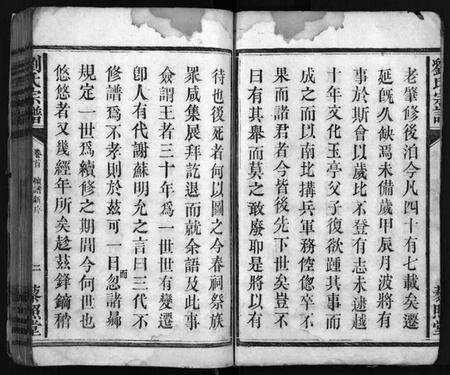 劉氏宗譜
老肇修後泊今凡四十有七載矣遷
延旣久缺焉未備歲甲辰月波將有
事於斯會以歲比不登有志未逮越
十年文化玉亭父子復欲踵其事而
成之而以南北搆兵軍務倥傯卒不
果而諸君者今皆後先下世矣豈不
曰有其舉而莫之敢廢耶是將以有
待也後死者何以圖之今春祠祭族
眾咸集展拜訖退而就余語及此事
僉謂王者三十年爲一世世有變遷
卽人有代謝蘇明允之言曰三代不
修譜爲不孝則於茲可一日忽諸歸
而
規定一世爲續修之期間今何世也
悠悠者又幾經年所矣趁茲鋒鏑稍
劉氏宗譜
卷首
二
藜照堂